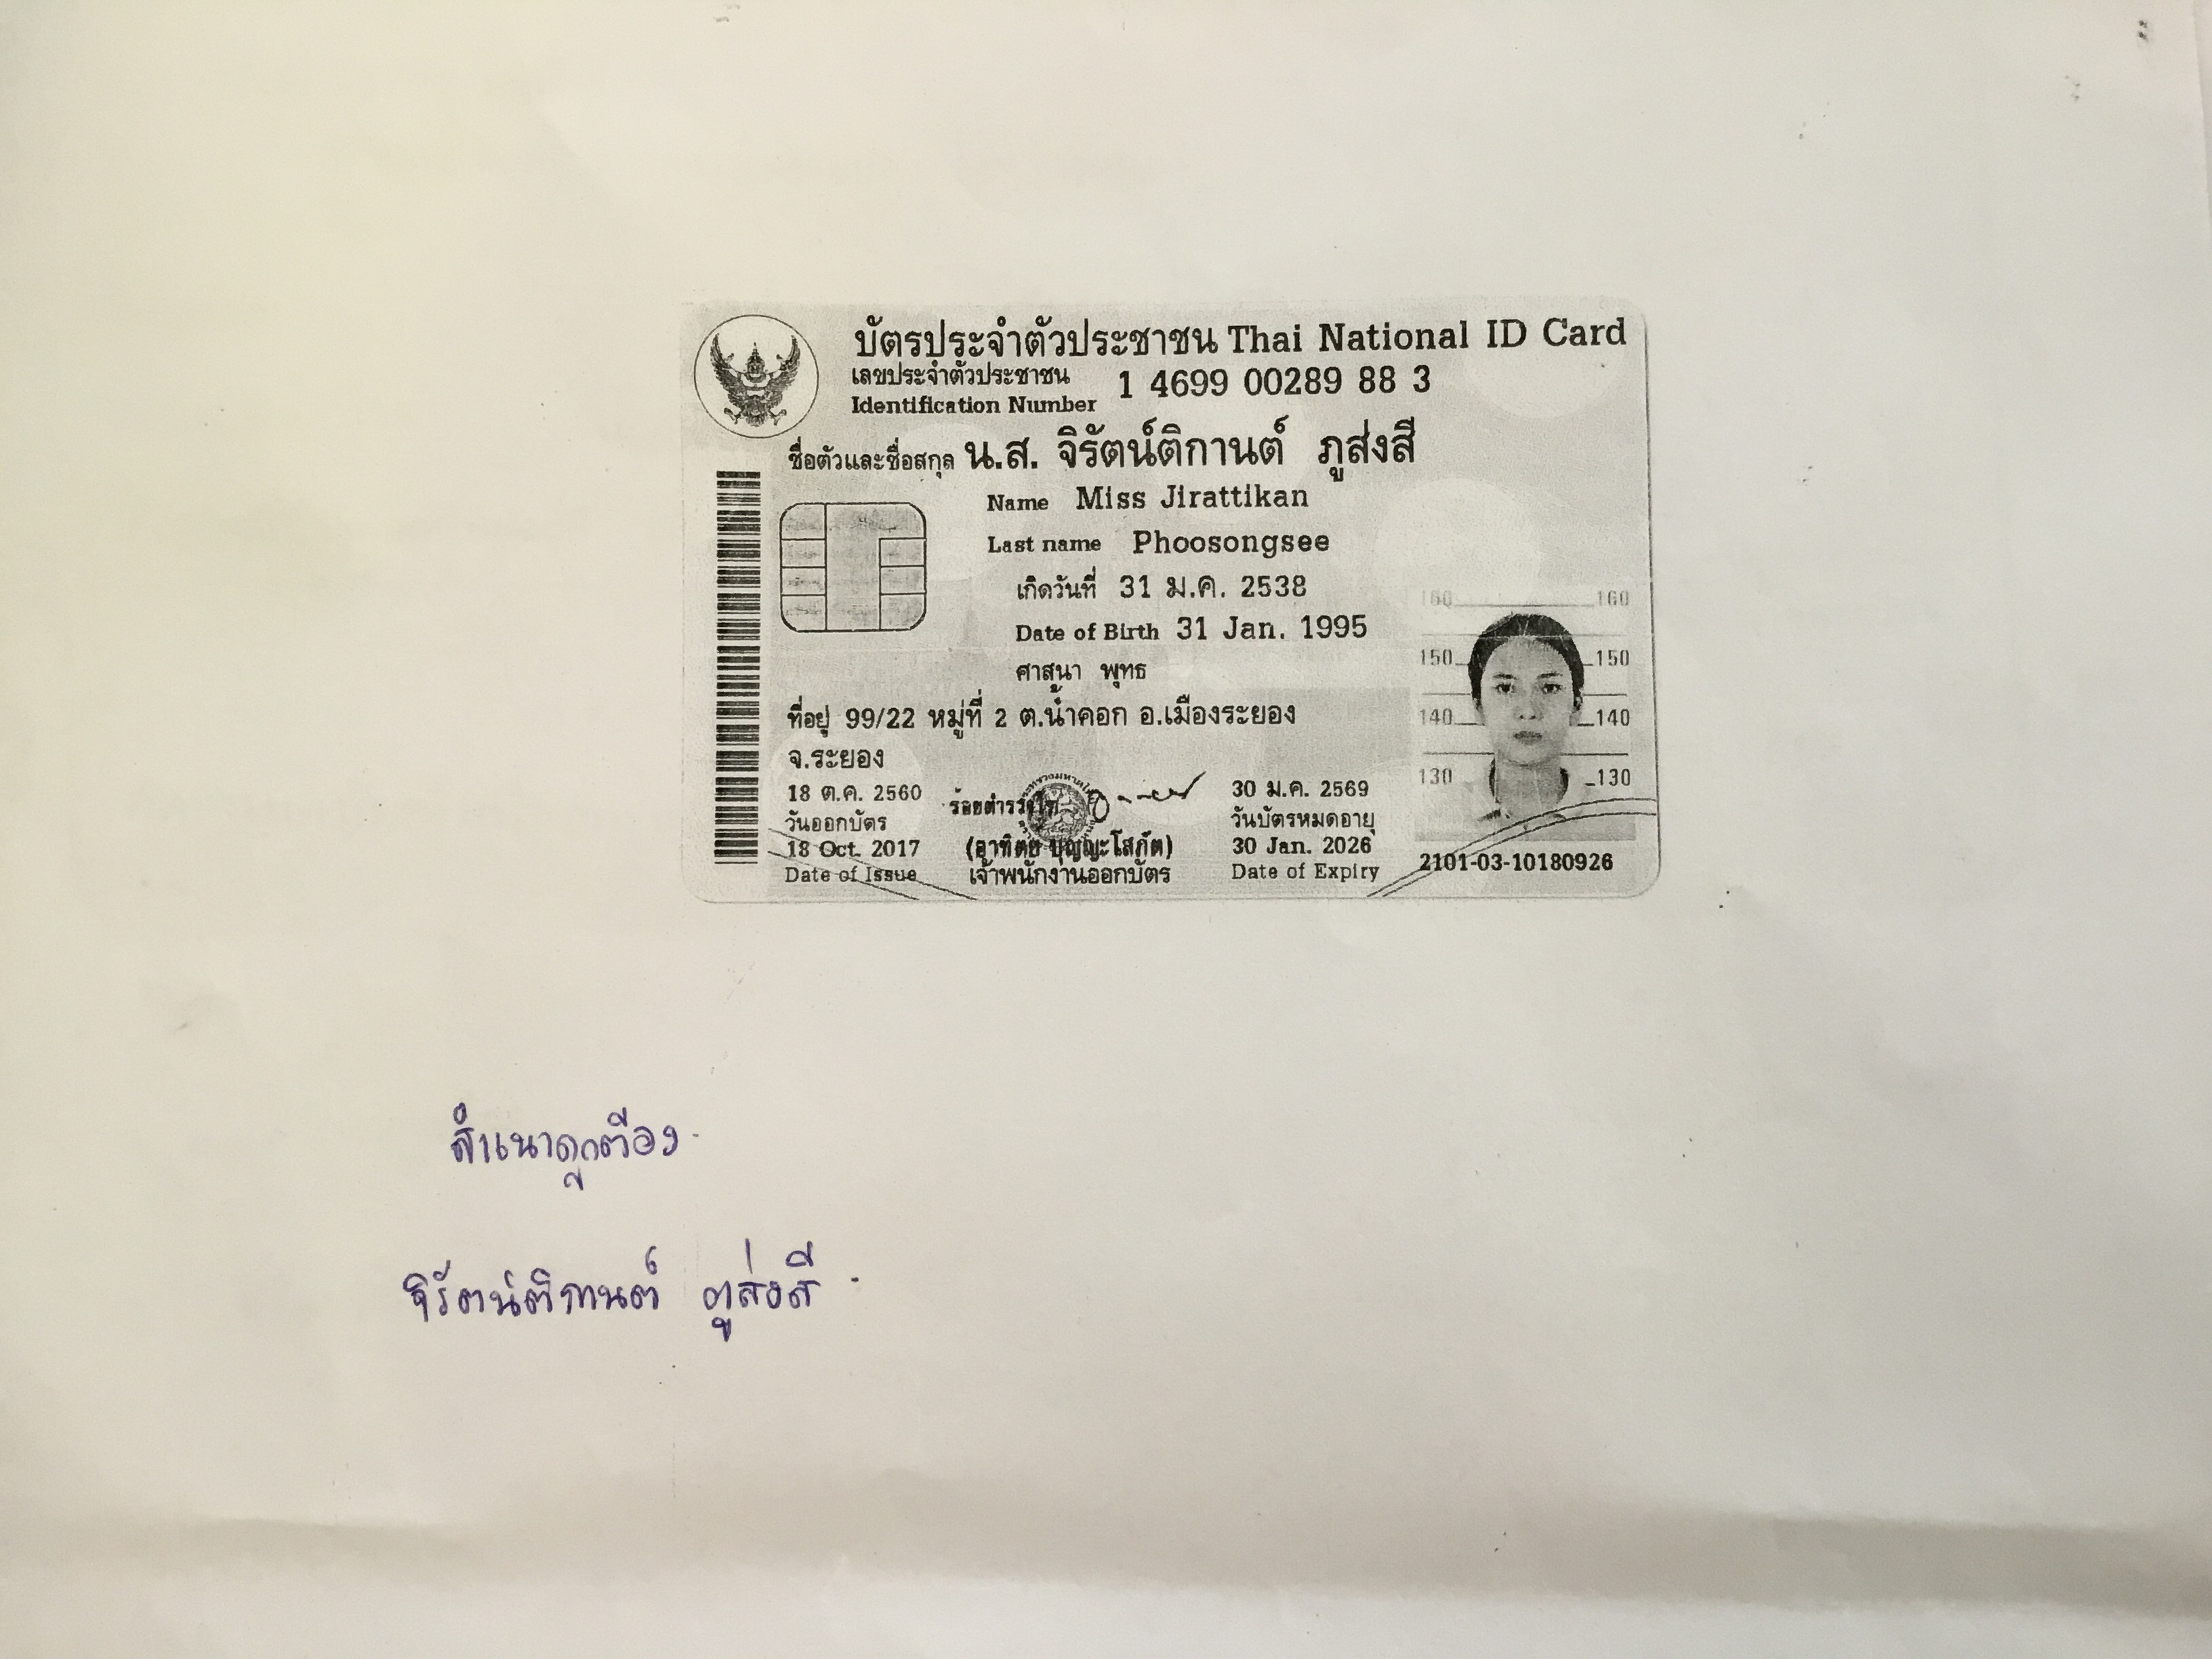 บัตรประจำตัวประชาชน Thai National ID Card
เลขประจำตัวประชาชน
Identification Number 1 4699 00289 88 3
ชื่อตัวและชื่อสกุล น.ส. จิรัตน์ติกานต์ ภูส่งสี
Name Miss Jirattikan
Last name Phoosongsee
เกิดวันที่ 31 ม.ค. 2538
Date of Birth 31 Jan. 1995
ศาสนา พุทธ
ที่อยู่ 99/22 หมู่ที่ 2 ต.น้ำคอก อ.เมืองระยอง
จ.ระยอง
18 ต.ค. 2560
วันออกบัตร
18 Oct. 2017
Date of Issue
(อาทิตย์ บุญญะโสภัต)
เจ้าพนักงานออกบัตร
30 ม.ค. 2569
วันบัตรหมดอายุ
30 Jan. 2026
Date of Expiry
160 160
150 150
140 140
130 130
2101-03-10180926
สำเนาถูกต้อง
จิรัตน์ติกานต์ ภูส่งสี